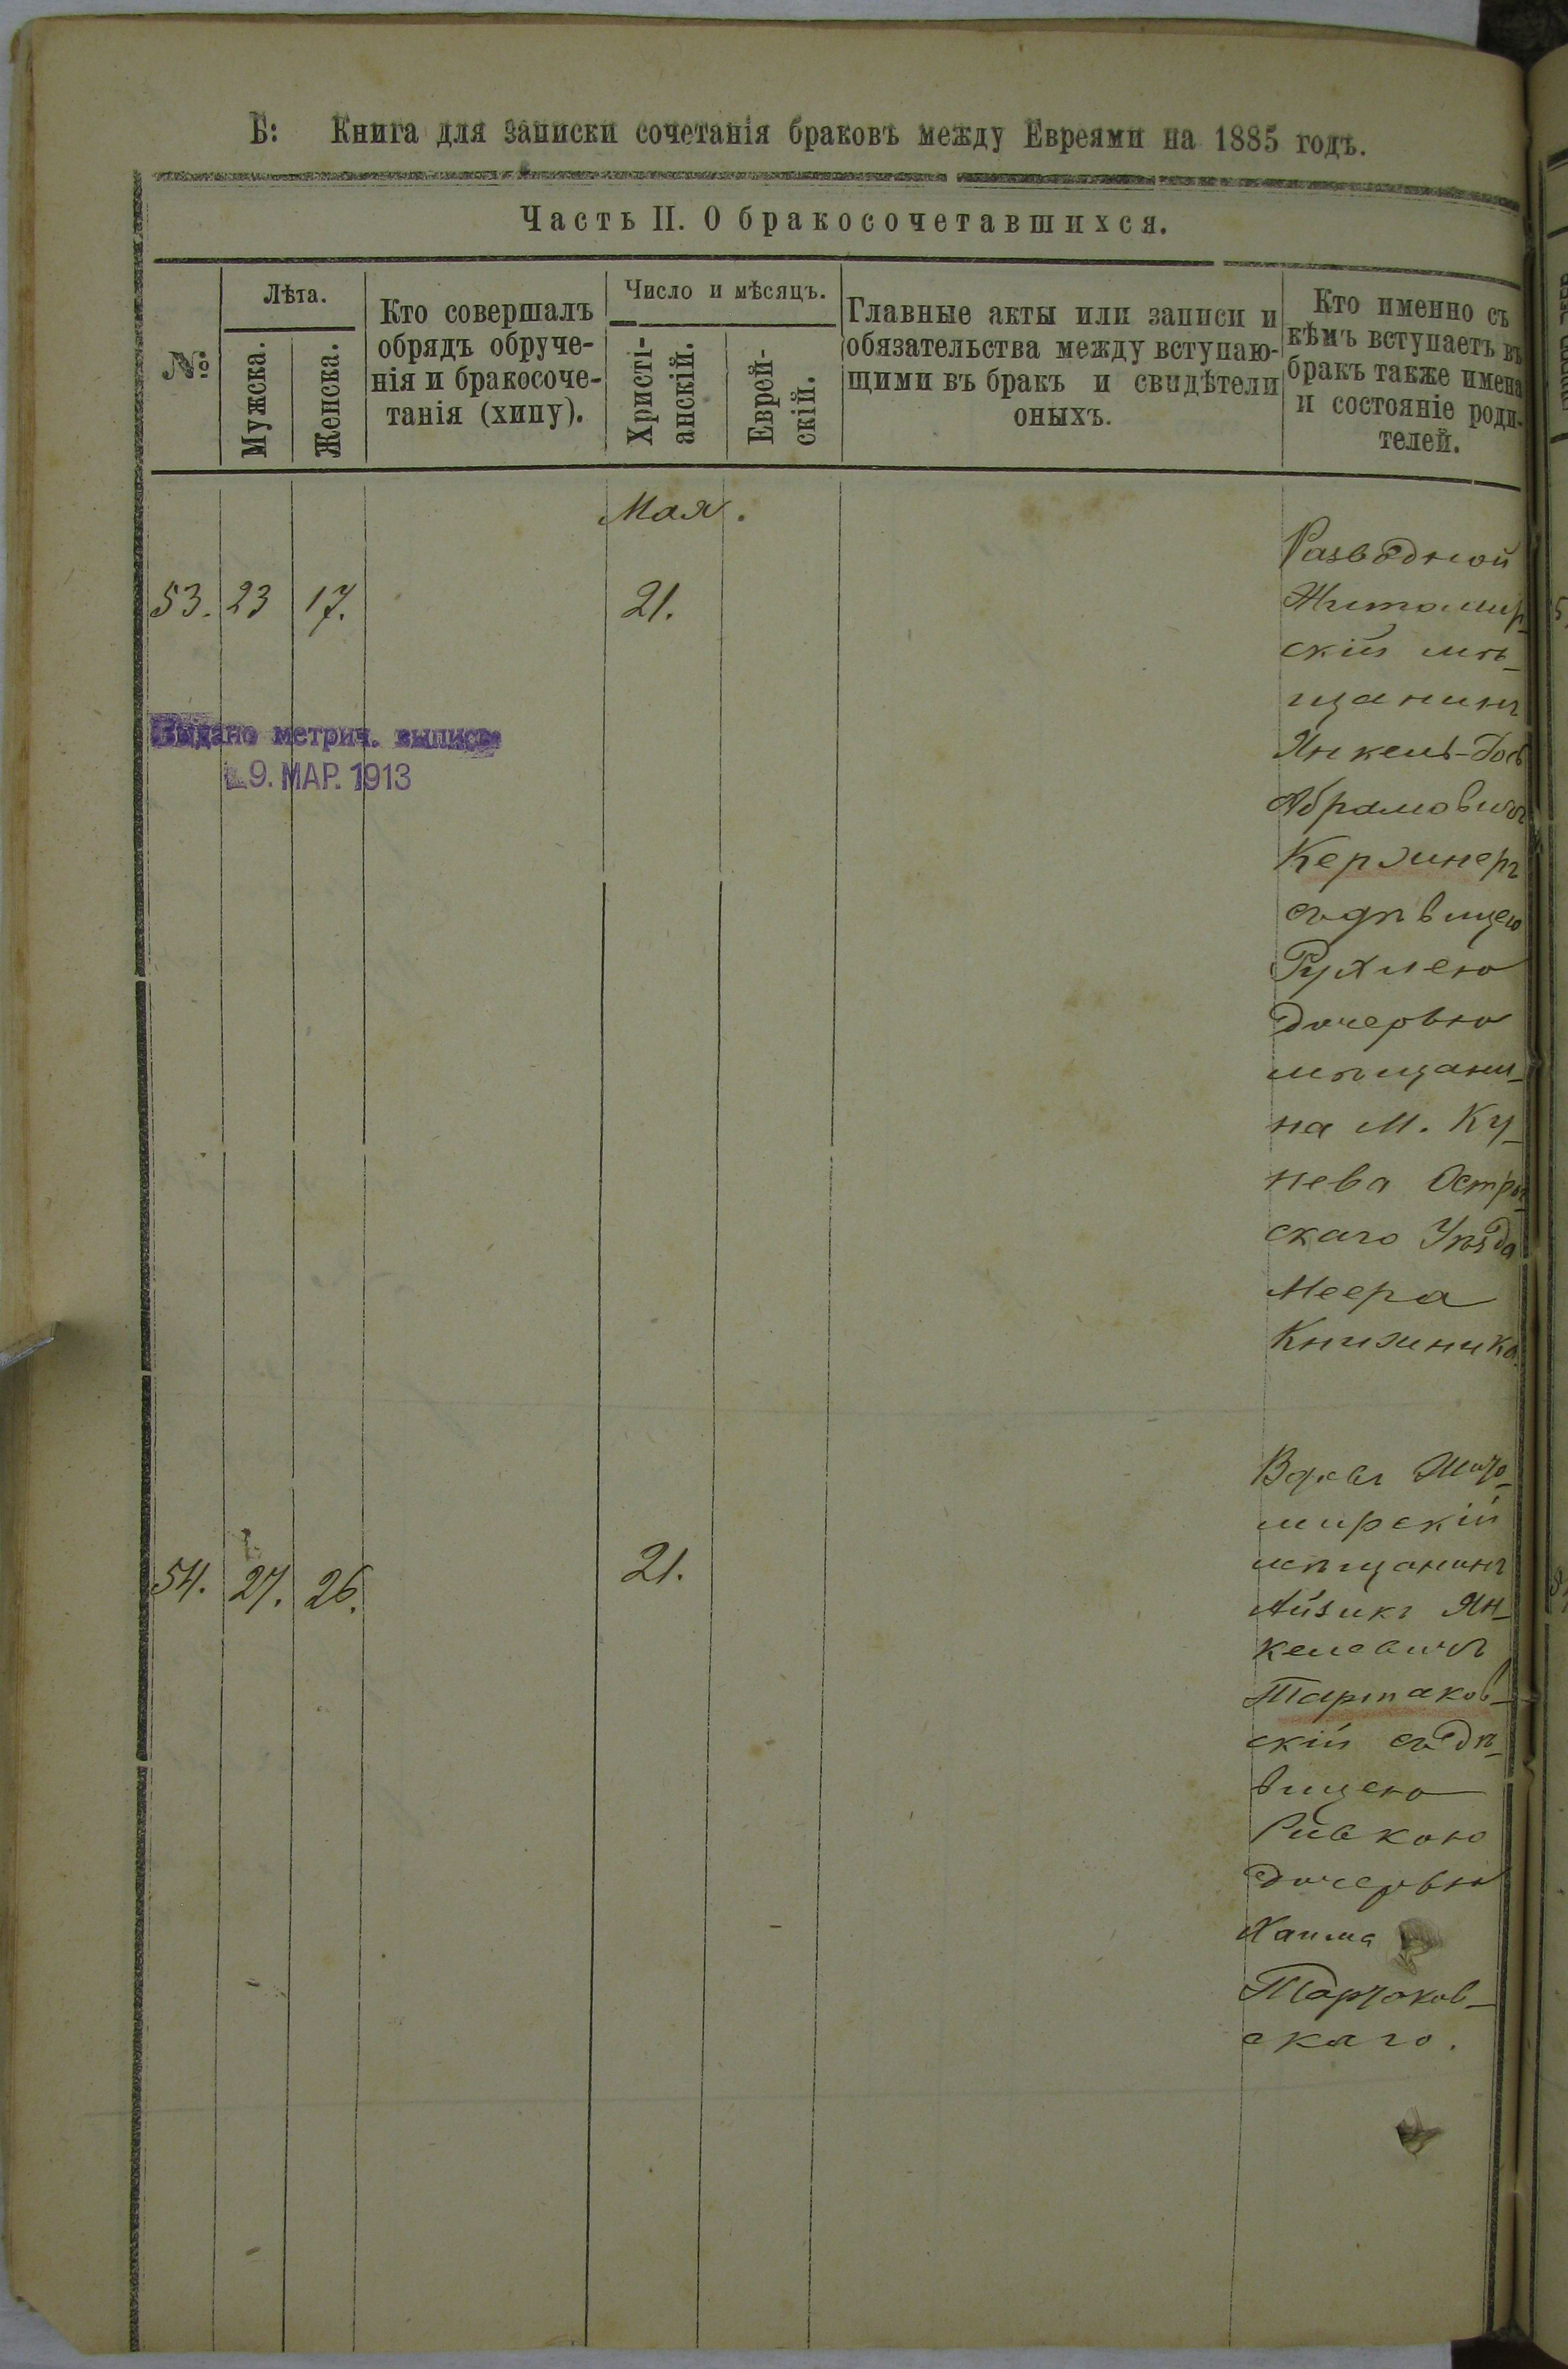 Б: Книга для записки сочетанія браковъ между Евреями на 1885 годъ.
Часть II. О бракосочетавшихся.
№
Лѣта.
Мужска.
Женска.
Кто совершалъ
обрядъ обруче-
нія и бракосоче-
танія (хипу).
Число и мѣсяцъ.
Христі-
анскій.
Еврей-
скій.
Главные акты или записи и
обязательства между вступаю-
щими въ бракъ и свидѣтели
оныхъ.
Кто именно съ
кѣмъ вступаетъ въ
бракъ также имена
и состояніе роди-
телей.
Мая.
53. 23 17. 21.
Разводной
Житомир-
скій мѣ-
щанинъ
Янкель-
Абрамовичъ
Кержнеръ
съ дѣвицею
Рухлею
дочерью
мѣщани-
на М. Ку-
нева Острож
скаго Уѣзда
Меера
Книжника
Выдано метрич. выпись
9. МАР. 1913
54. 27. 26. 21.
Вдовъ Жито-
мирскій
мѣщанинъ
Айзикъ Ян-
келевичъ
Тартаков-
скій съ дѣ-
вицею
Ривкою
дочерью
Хаима
Тартаков-
скаго.